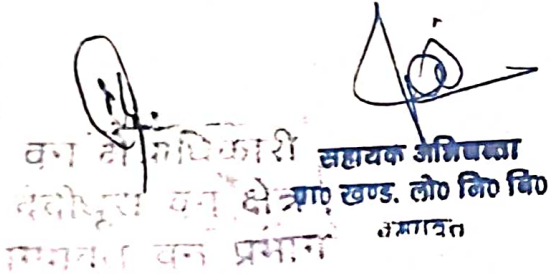 वन क्षेत्राधिकारी
देवीधुरा वन क्षेत्र
वन प्रभाग
सहायक अभियन्ता
प्रा० खण्ड. लो० नि० वि०
चम्पावत